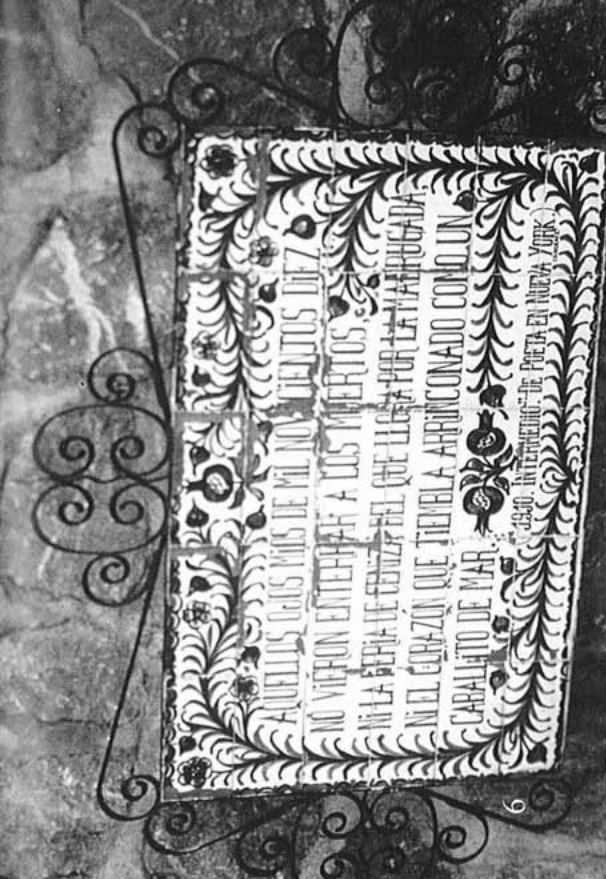 AQUELLOS OJOS MIOS DE MIL NOVECIENTOS DIEZ
NO VIERON ENTERRAR A LOS MUERTOS,
NI LA FERIA DE CENIZA DEL QUE LLORA POR LA MADRUGADA,
NI EL CORAZÓN QUE TIEMBLA ARRINCONADO COMO UN
CABALLITO DE MAR.
"1910. INTERMEDIO". DE POETA EN NUEVA YORK.
6